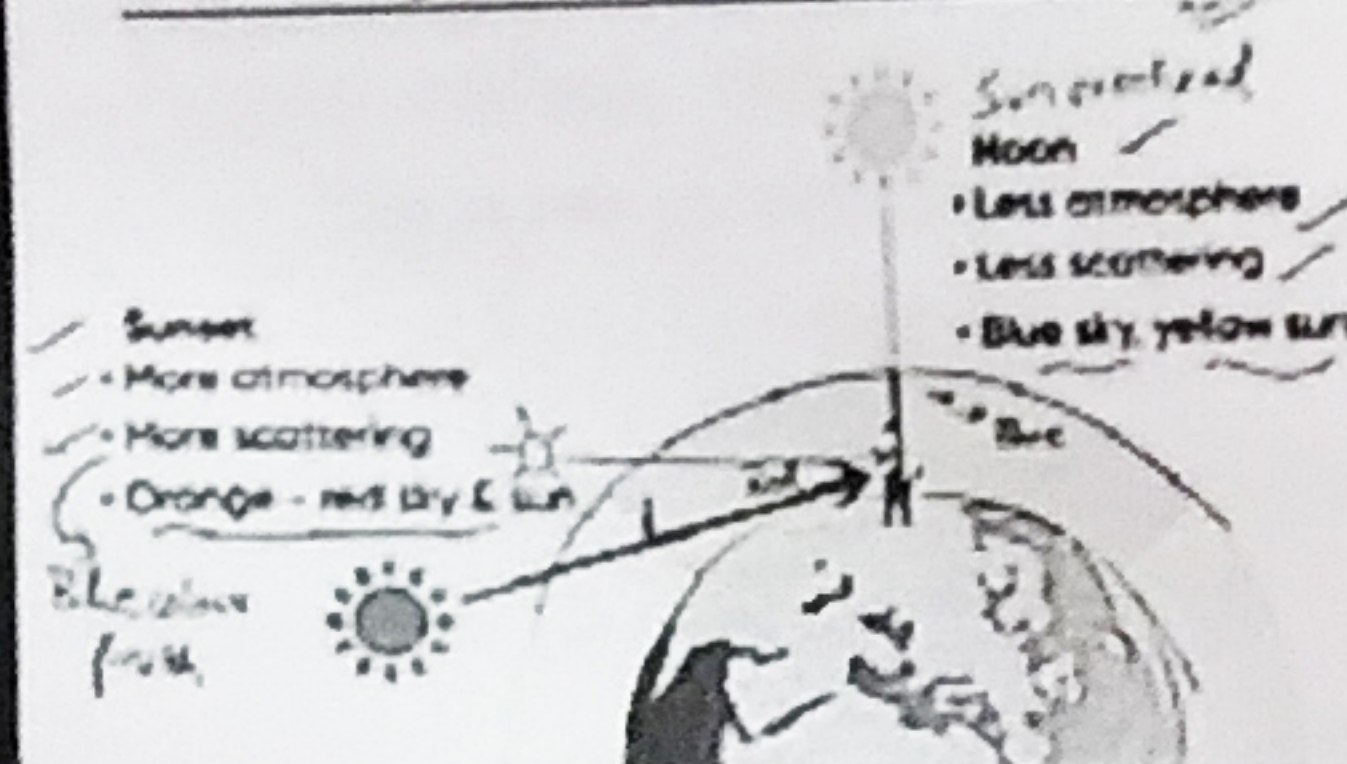 Sun overhead
Noon
• Less atmosphere
• Less scattering
• Blue sky, yellow sun
Sunset
• More atmosphere
• More scattering
• Orange - red sky & sun
Blue
Red
Blue colour